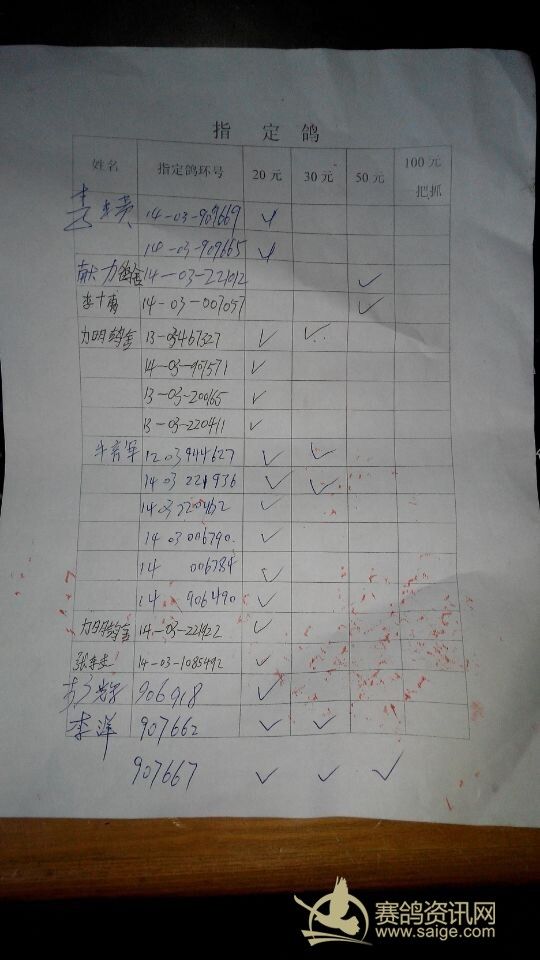 指 定 鸽
姓名 指定鸽环号 20元 30元 50元 100元一把抓
14-03-907669 ✓
14-03-907665 ✓
14-03-221012 ✓
14-03-007057 ✓
力明鸽舍 13-03467327 ✓ ✓
14-03-907571 ✓
13-03-200165 ✓
13-03-220411 ✓
牛育军 12 03 944627 ✓ ✓
14 03 221936 ✓ ✓
14 03 220462 ✓
14 03 006790 ✓
14 006784 ✓
14 906490 ✓
力明鸽舍 14-03-221422 ✓
14-03-1085492 ✓
906918 ✓
李洋 907662 ✓ ✓
907667 ✓ ✓ ✓
赛鸽资讯网
www.saige.com